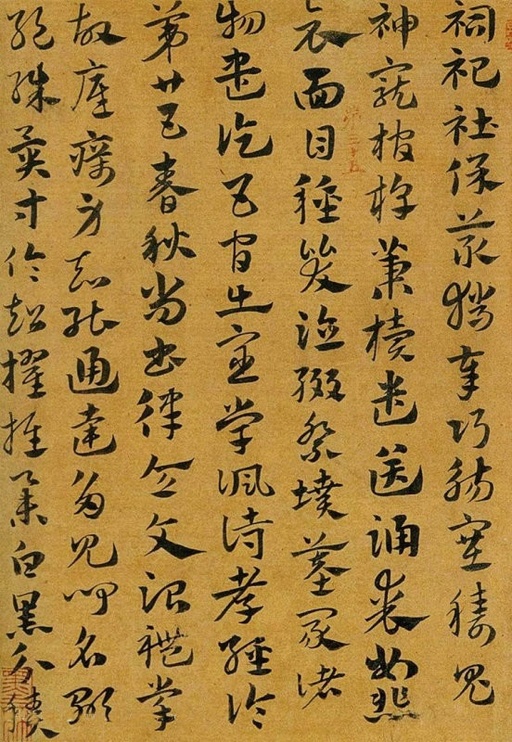 祠祀社保蕞獵奉謁禓塞禱鬼
神寵棺槨槥櫝遣送踊喪弔悲
哀面目種哭泣綴祭墳墓冢諸
物盡訖五官出宦學諷詩孝經論
第廿五春秋尚書律令文治禮掌
故厲身知能通達多見聞名顯
絕殊異等倫超擢推擇白黑分積
第二十五